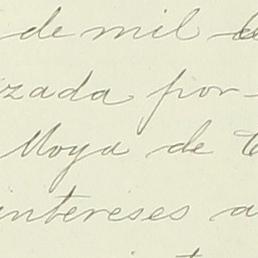 de mil
zada por-
Moya de
intereses a